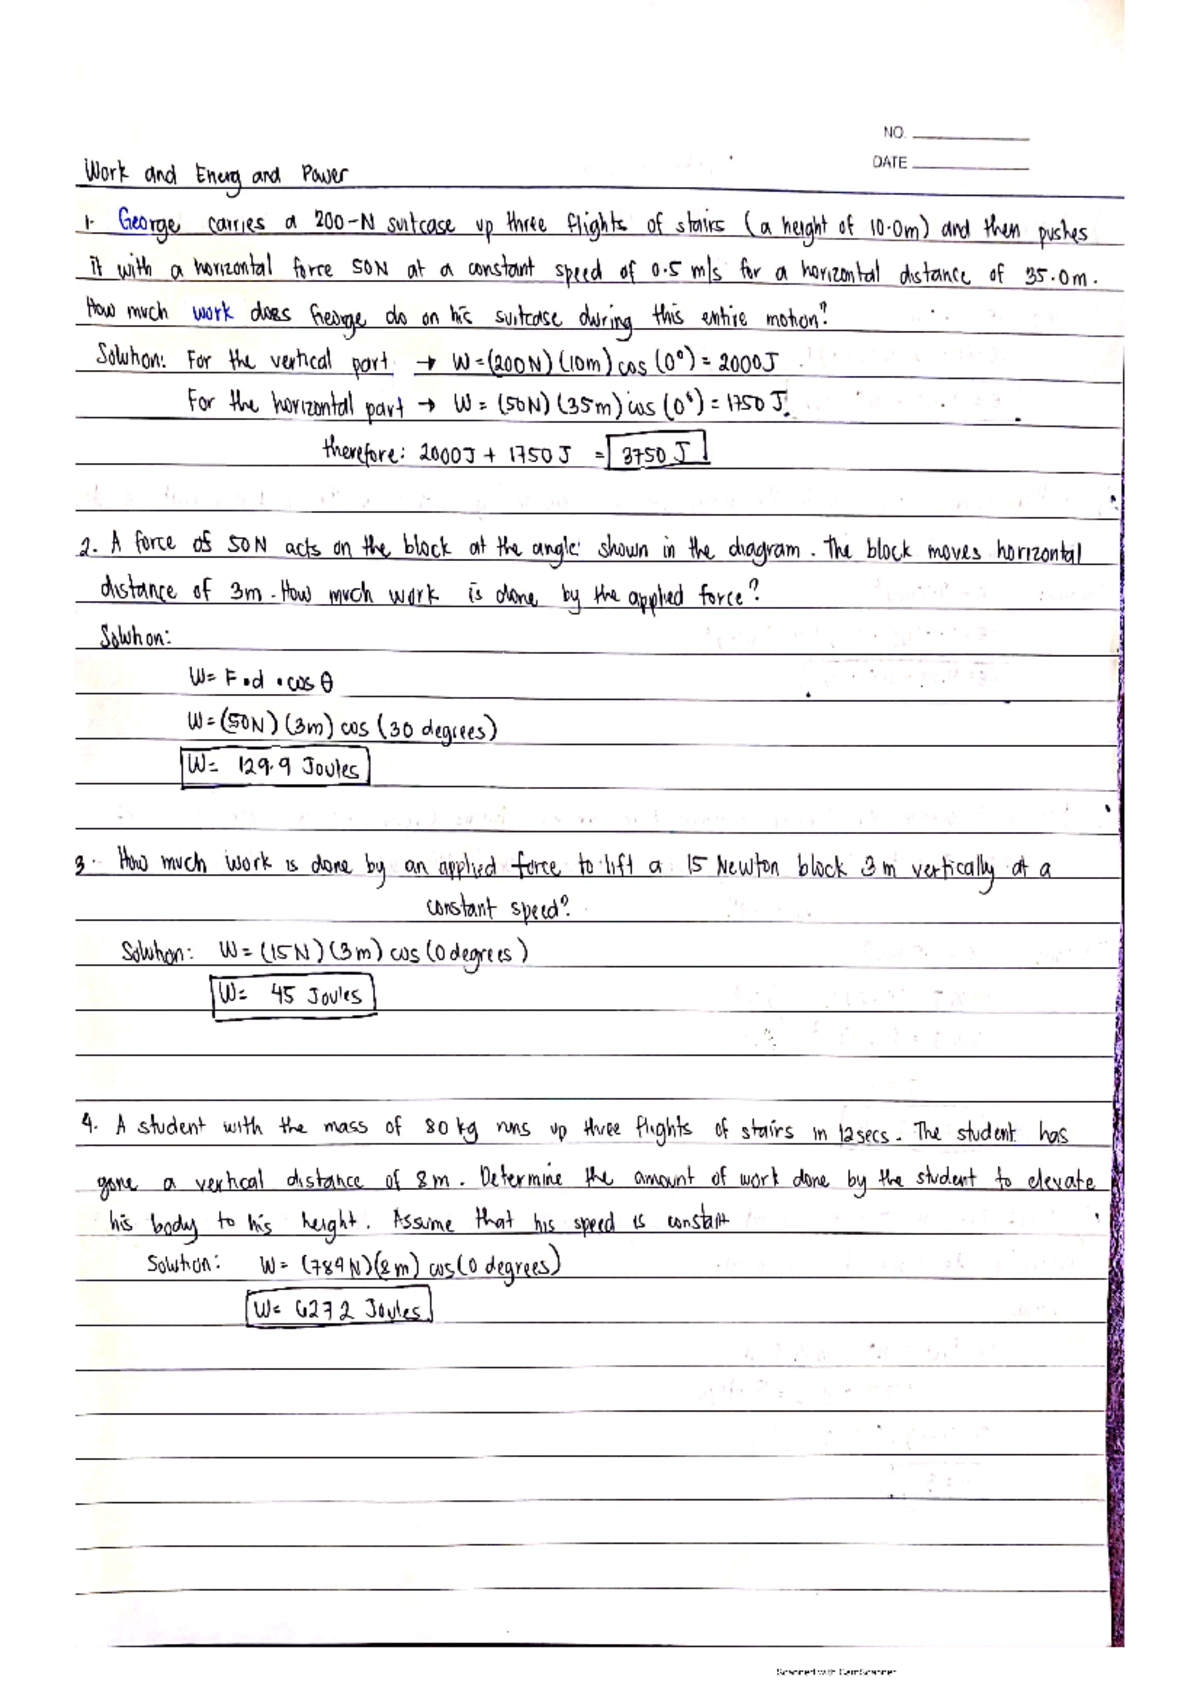 NO.
DATE
Work and Energ and Power
1. George carries a 200-N suitcase up three flights of stairs (a height of 10.0m) and then pushes
it with a horizontal force 50N at a constant speed of 0.5 m/s for a horizontal distance of 35.0m.
How much work does George do on his suitcase during this entire motion?
Solution: For the vertical part → W=(200N)(10m) cos (0°) = 2000J
For the horizontal part → W = (50N)(35m) cos (0°) = 1750 J.
therefore: 2000J + 1750J = 3750 J
2. A force of 50N acts on the block at the angle shown in the diagram. The block moves horizontal
distance of 3m. How much work is done by the applied force?
Solution:
W= F•d •cos θ
W=(50N)(3m) cos (30 degrees)
W= 129.9 Joules
3. How much work is done by an applied force to lift a 15 Newton block 3m vertically at a
constant speed?
Solution: W=(15N)(3m) cos (0 degrees)
W= 45 Joules
4. A student with the mass of 80kg runs up three flights of stairs in 12secs. The student has
gone a vertical distance of 8m. Determine the amount of work done by the student to elevate
his body to his height. Assume that his speed is constant
Solution: W= (784N)(8m) cos(0 degrees)
W= 6272 Joules
Scanned with CamScanner